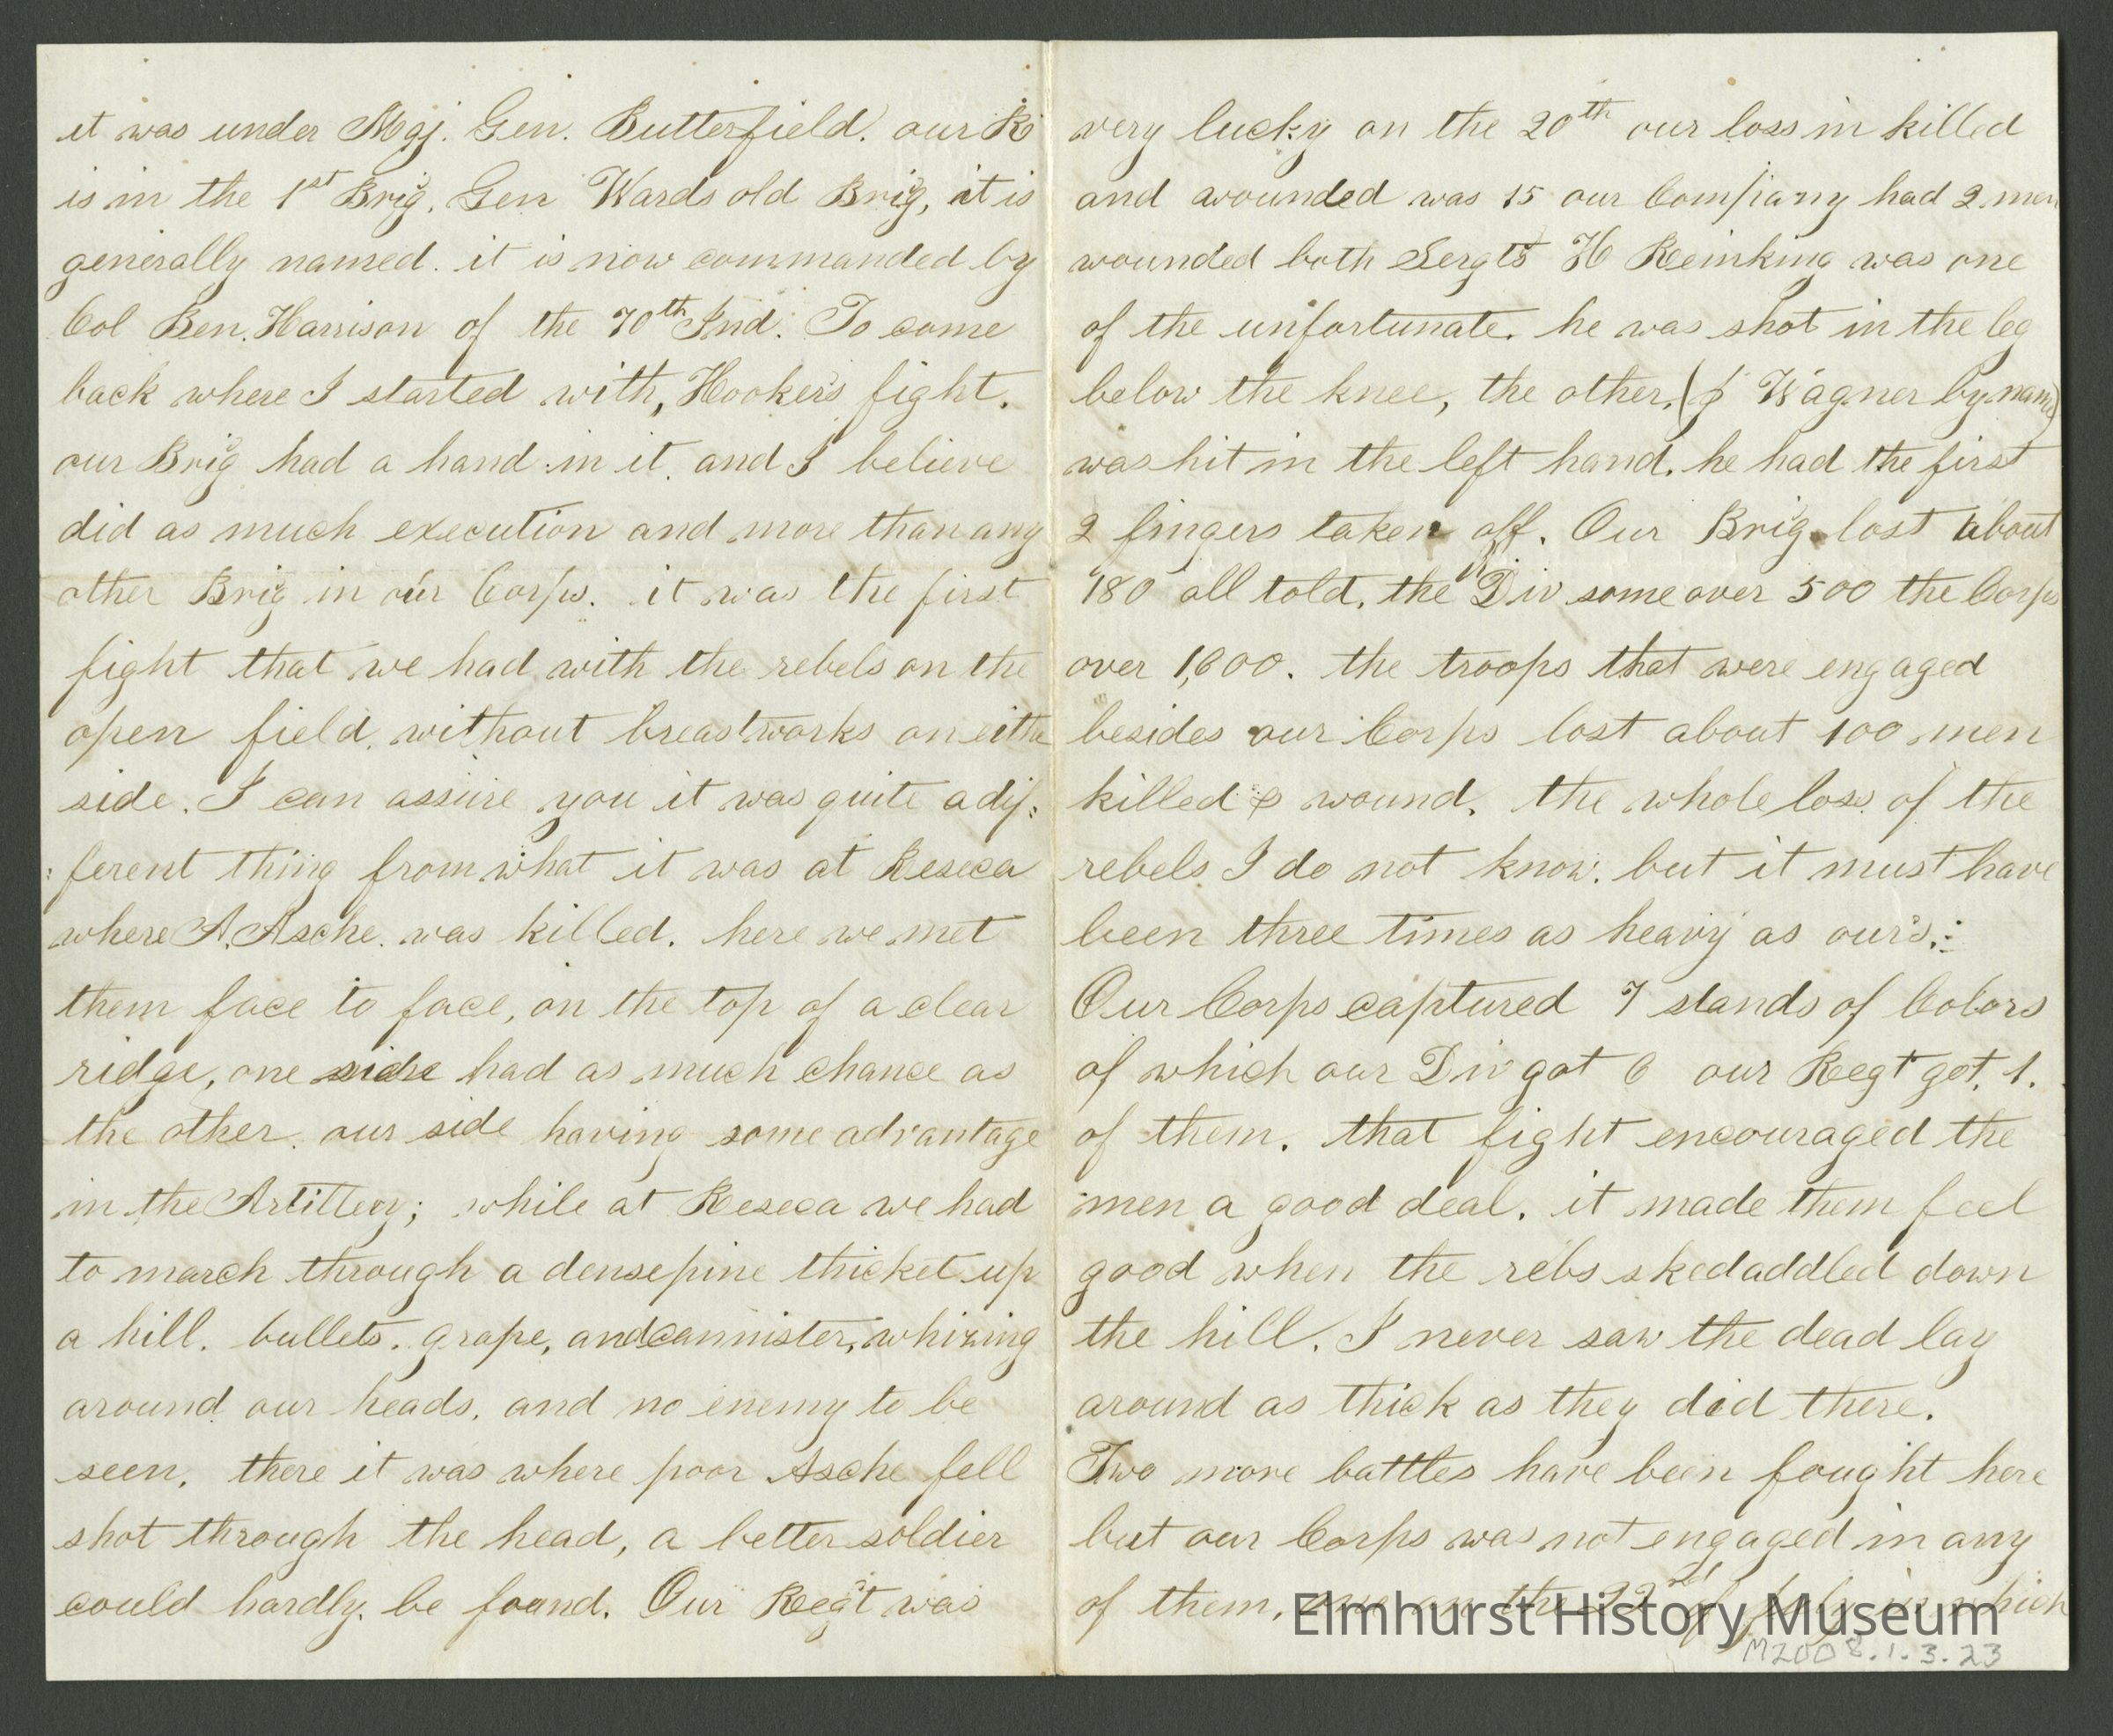 it was under Maj. Gen. Butterfield. our R
is in the 1st Brig. Gen Wards old Brig, it is
generally named. it is now commanded by
Col Ben. Harrison of the 70th Ind. To come
back where I started with, Hookers fight.
our Brig had a hand in it. and I believe
did as much execution and more than any
other Brig in our Corps. it was the first
fight that we had with the rebels on the
open field. without breastworks on eithe
side. I can assure you it was quite a dif:
:ferent thing from what it was at Reseca
where A. Asche. was killed. here we met
them face to face, on the top of a clear
ridge, one side had as much chance as
the other. our side having some advantage
in the Artillery; while at Reseca we had
to march through a dense pine thicket up
a hill. bullets. grape, and cannister, whizing
around our heads. and no enemy to be
seen. there it was where poor Asche fell
shot through the head, a better soldier
could hardly. be found. Our Regt was
very lucky on the 20th our loss in killed
and wounded was 15 our Company had 2 men
wounded both Sergts H Reinking was one
of the unfortunate. he was shot in the leg
below the knee, the other, (J Wagner by name)
was hit in the left hand. he had the first
2 fingers taken off. Our Brig lost about
180 all told. the Div some over 500 the Corps
over 1,600. the troops that were engaged
besides our Corps lost about 100 men
killed & wound. the whole loss of the
rebels I do not know. but it must have
been three times as heavy as our's.
Our Corps captured 7 stands of Colors
of which our Div got 6 our Regt got. 1.
of them. that fight encouraged the
men a good deal. it made them feel
good when the rebs skedaddled down
the hill. I never saw the dead lay
around as thick as they did there.
Two more battles have been fought here
but our Corps was not engaged in any
of them. one on the 22nd of July in which
Elmhurst History Museum
M2008.1.3.23